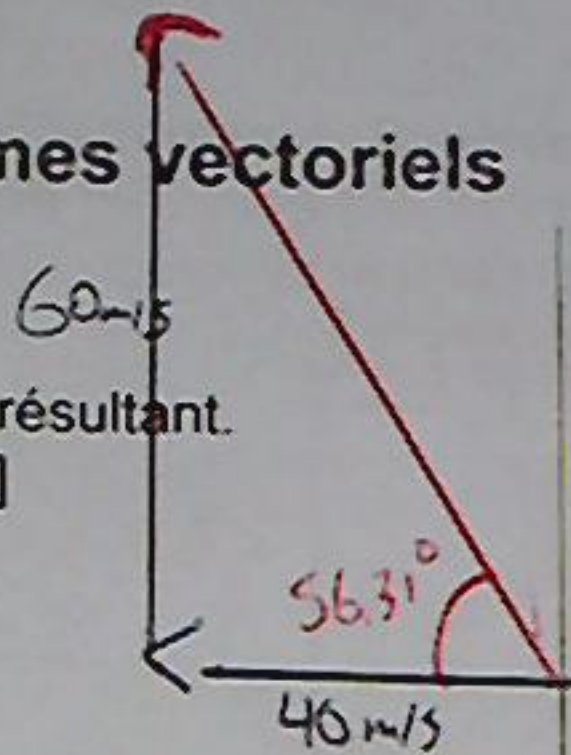 mes vectoriels
60 m/s
résultant.
]
56.31°
40 m/s